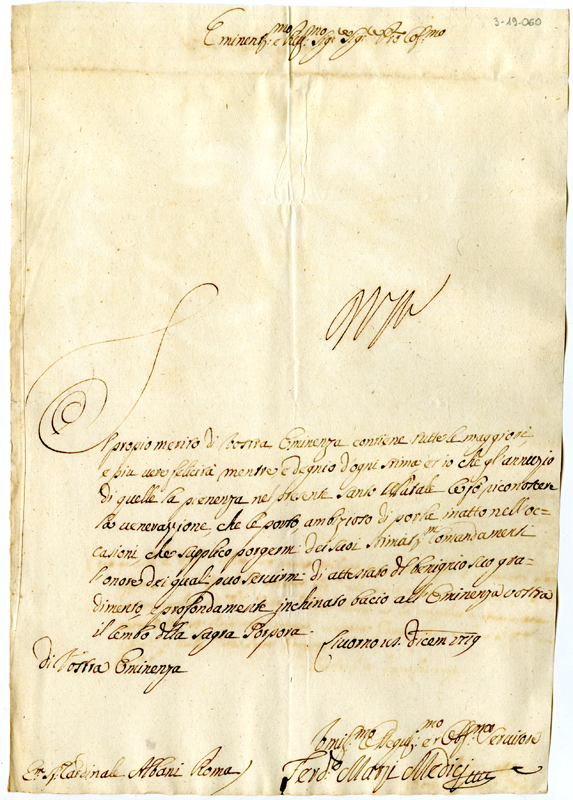 3-19-060
Eminent.mo e Rev.mo Sig.re Sig.re P.ro Col.mo
Il propio merito di Vostra Eminenza contiene tutte le maggiori,
e più vere felicità, mentre è degnio d'ogni stima et io che gl'annuzio
di quelle la pienenza nel present Santo Natale
la venerazione, che le porto, ambizioso di porla in atto nell'oc-
casioni, che supplico porgermi de suoi stimat.mi comandamenti
l'onore dei quali può servirmi di attestato del benignio suo gra-
dimento, e profondamente inchinato bacio all'Eminenza vostra
il lembo della Sagra Porpora.
Livorno 18. Dicem 1719
di Vostra Eminenza
Vmil.mo et Obl.mo Servitore
Em. S. Cardinale Albani Roma
Ferd.o Marzi Medici